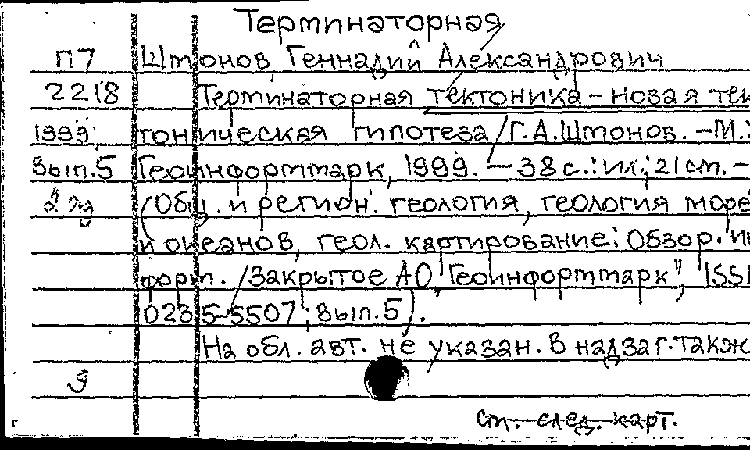 Терминаторная
П7 Штонов Геннадий Александрович
2218 Терминаторная тектоника – новая тек
1999 тоническая гипотеза / Г.А.Штонов. – М.:
Вып.5 Геоинформмарк, 1999. – 38 с.: ил.; 21 см. –
2 экз (Общ. и регион. геология, геология море
и океанов, геол. картирование: Обзор. ин
форм. / Закрытое АО "Геоинформмарк", ISSN
0235-5507; Вып.5).
На обл. авт. не указан. В надзаг. также
Э
см. след. карт.